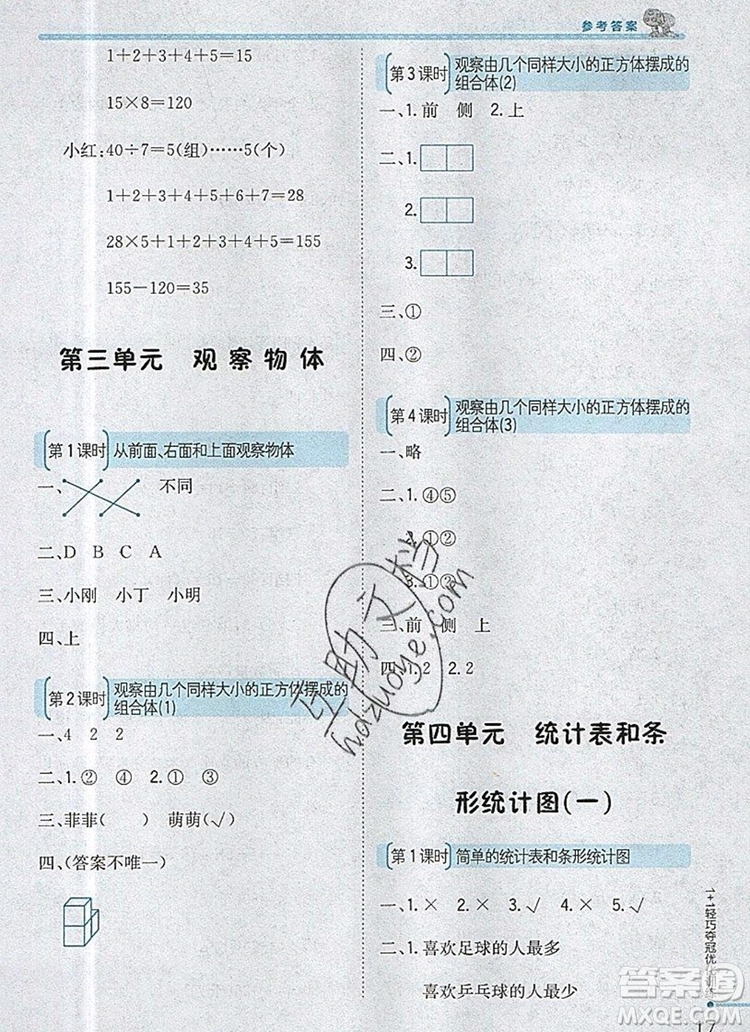 参考答案
1+2+3+4+5=15
15×8=120
小红:40÷7=5(组)……5(个)
1+2+3+4+5+6+7=28
28×5+1+2+3+4+5=155
155-120=35
第三单元 观察物体
第1课时 从前面、右面和上面观察物体
一、 不同
二、D B C A
三、小刚 小丁 小明
四、上
第2课时 观察由几个同样大小的正方体摆成的
组合体(1)
一、4 2 2
二、1.② ④ 2.① ②
三、菲菲( ) 萌萌(√)
四、(答案不唯一)
第3课时 观察由几个同样大小的正方体摆成的
组合体(2)
一、1.前 侧 2.上
二、1.
2.
3.
三、①
四、②
第4课时 观察由几个同样大小的正方体摆成的
组合体(3)
一、略
二、1.④⑤
2.①②
3.①③
三、前 侧 上
四、1.2 2.2
第四单元 统计表和条
形统计图(一)
第1课时 简单的统计表和条形统计图
一、1.× 2.× 3.√ 4.√ 5.×
二、1.喜欢足球的人最多
喜欢乒乓球的人最少
1+1轻巧夺冠优
17
互助文档
hdzuoye.com
答案圈
MXQE.COM